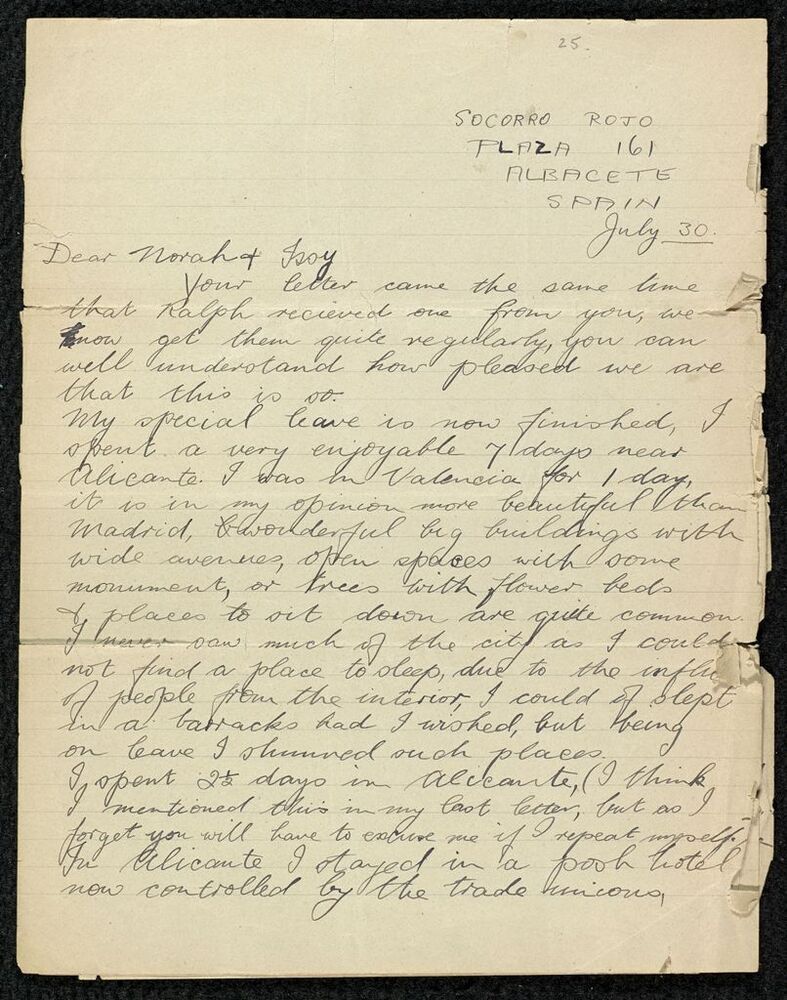 25.
SOCORRO ROJO
PLAZA 161
ALBACETE
SPAIN
July 30.
Dear Norah &
Your letter came the same time
that Ralph recieved one from you, we
now get them quite regularly, you can
well understand how pleased we are
that this is so.
My special leave is now finished, I
spent a very enjoyable 7 days near
Alicante. I was in Valencia for 1 day,
it is in my opinion more beautiful than
Madrid, wonderful big buildings with
wide avenues, open spaces with some
monument, or trees with flower beds
& places to sit down are quite common.
I never saw much of the city as I could
not find a place to sleep, due to the influ
of people from the interior, I could of slept
in a barracks had I wished, but being
on leave I shunned such places.
I spent 2½ days in Alicante, (I think
I mentioned this in my last letter, but as I
forget you will have to excuse me if I repeat myself.)
In Alicante I stayed in a posh hotel
now controlled by the trade unions,